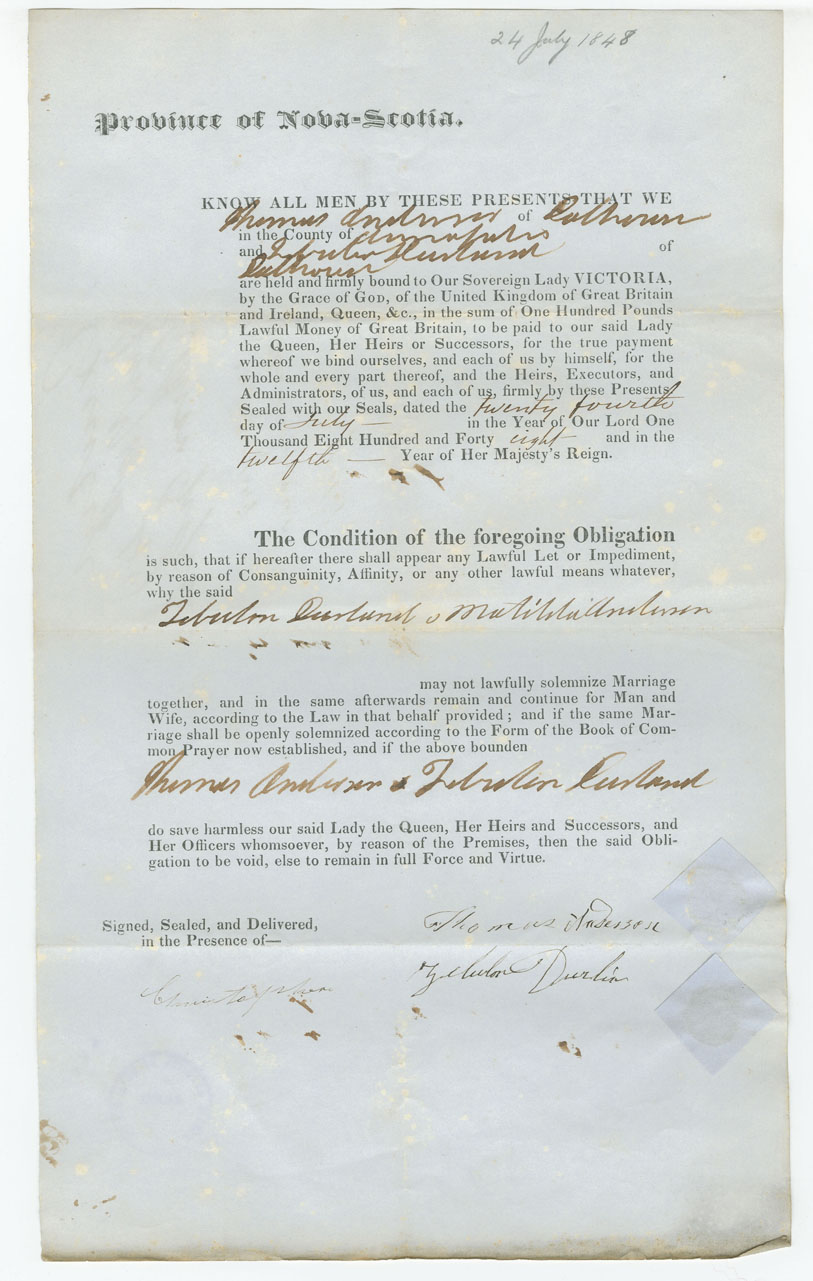 24 July 1848
Province of Nova-Scotia.
KNOW ALL MEN BY THESE PRESENTS THAT WE
Thomas Anderson of Dalhousie
in the County of Annapolis
and Zebulon Durland of
Dalhousie
are held and firmly bound to Our Sovereign Lady VICTORIA,
by the Grace of GOD, of the United Kingdom of Great Britain
and Ireland, Queen, &c., in the sum of One Hundred Pounds
Lawful Money of Great Britain, to be paid to our said Lady
the Queen, Her Heirs or Successors, for the true payment
whereof we bind ourselves, and each of us by himself, for the
whole and every part thereof, and the Heirs, Executors, and
Administrators, of us, and each of us, firmly by these Presents.
Sealed with our Seals, dated the twenty fourth
day of July — in the Year of Our Lord One
Thousand Eight Hundred and Forty eight and in the
twelfth — Year of Her Majesty's Reign.
The Condition of the foregoing Obligation
is such, that if hereafter there shall appear any Lawful Let or Impediment,
by reason of Consanguinity, Affinity, or any other lawful means whatever,
why the said
Zebulon Durland & Matilda Anderson
may not lawfully solemnize Marriage
together, and in the same afterwards remain and continue for Man and
Wife, according to the Law in that behalf provided; and if the same Mar-
riage shall be openly solemnized according to the Form of the Book of Com-
mon Prayer now established, and if the above bounden
Thomas Anderson & Zebulon Durland
do save harmless our said Lady the Queen, Her Heirs and Successors, and
Her Officers whomsoever, by reason of the Premises, then the said Obli-
gation to be void, else to remain in full Force and Virtue.
Signed, Sealed, and Delivered,
in the Presence of—
Thomas Anderson
Zebulon Durlin